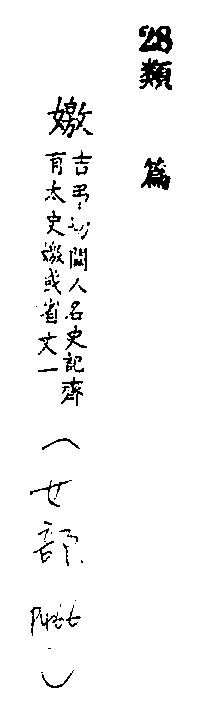 28類篇
嬓
吉弔切闕人名史記齊
有太史嬓或省文一
(女部 )